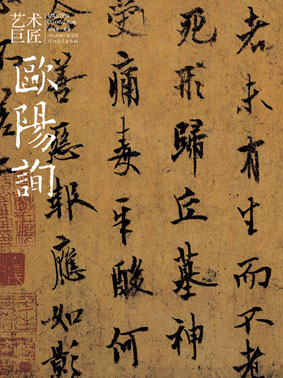 艺术
巨匠
歐陽詢
老未有生而不老
死形歸丘墓神
受痛毒辛酸何
善惡報應如影